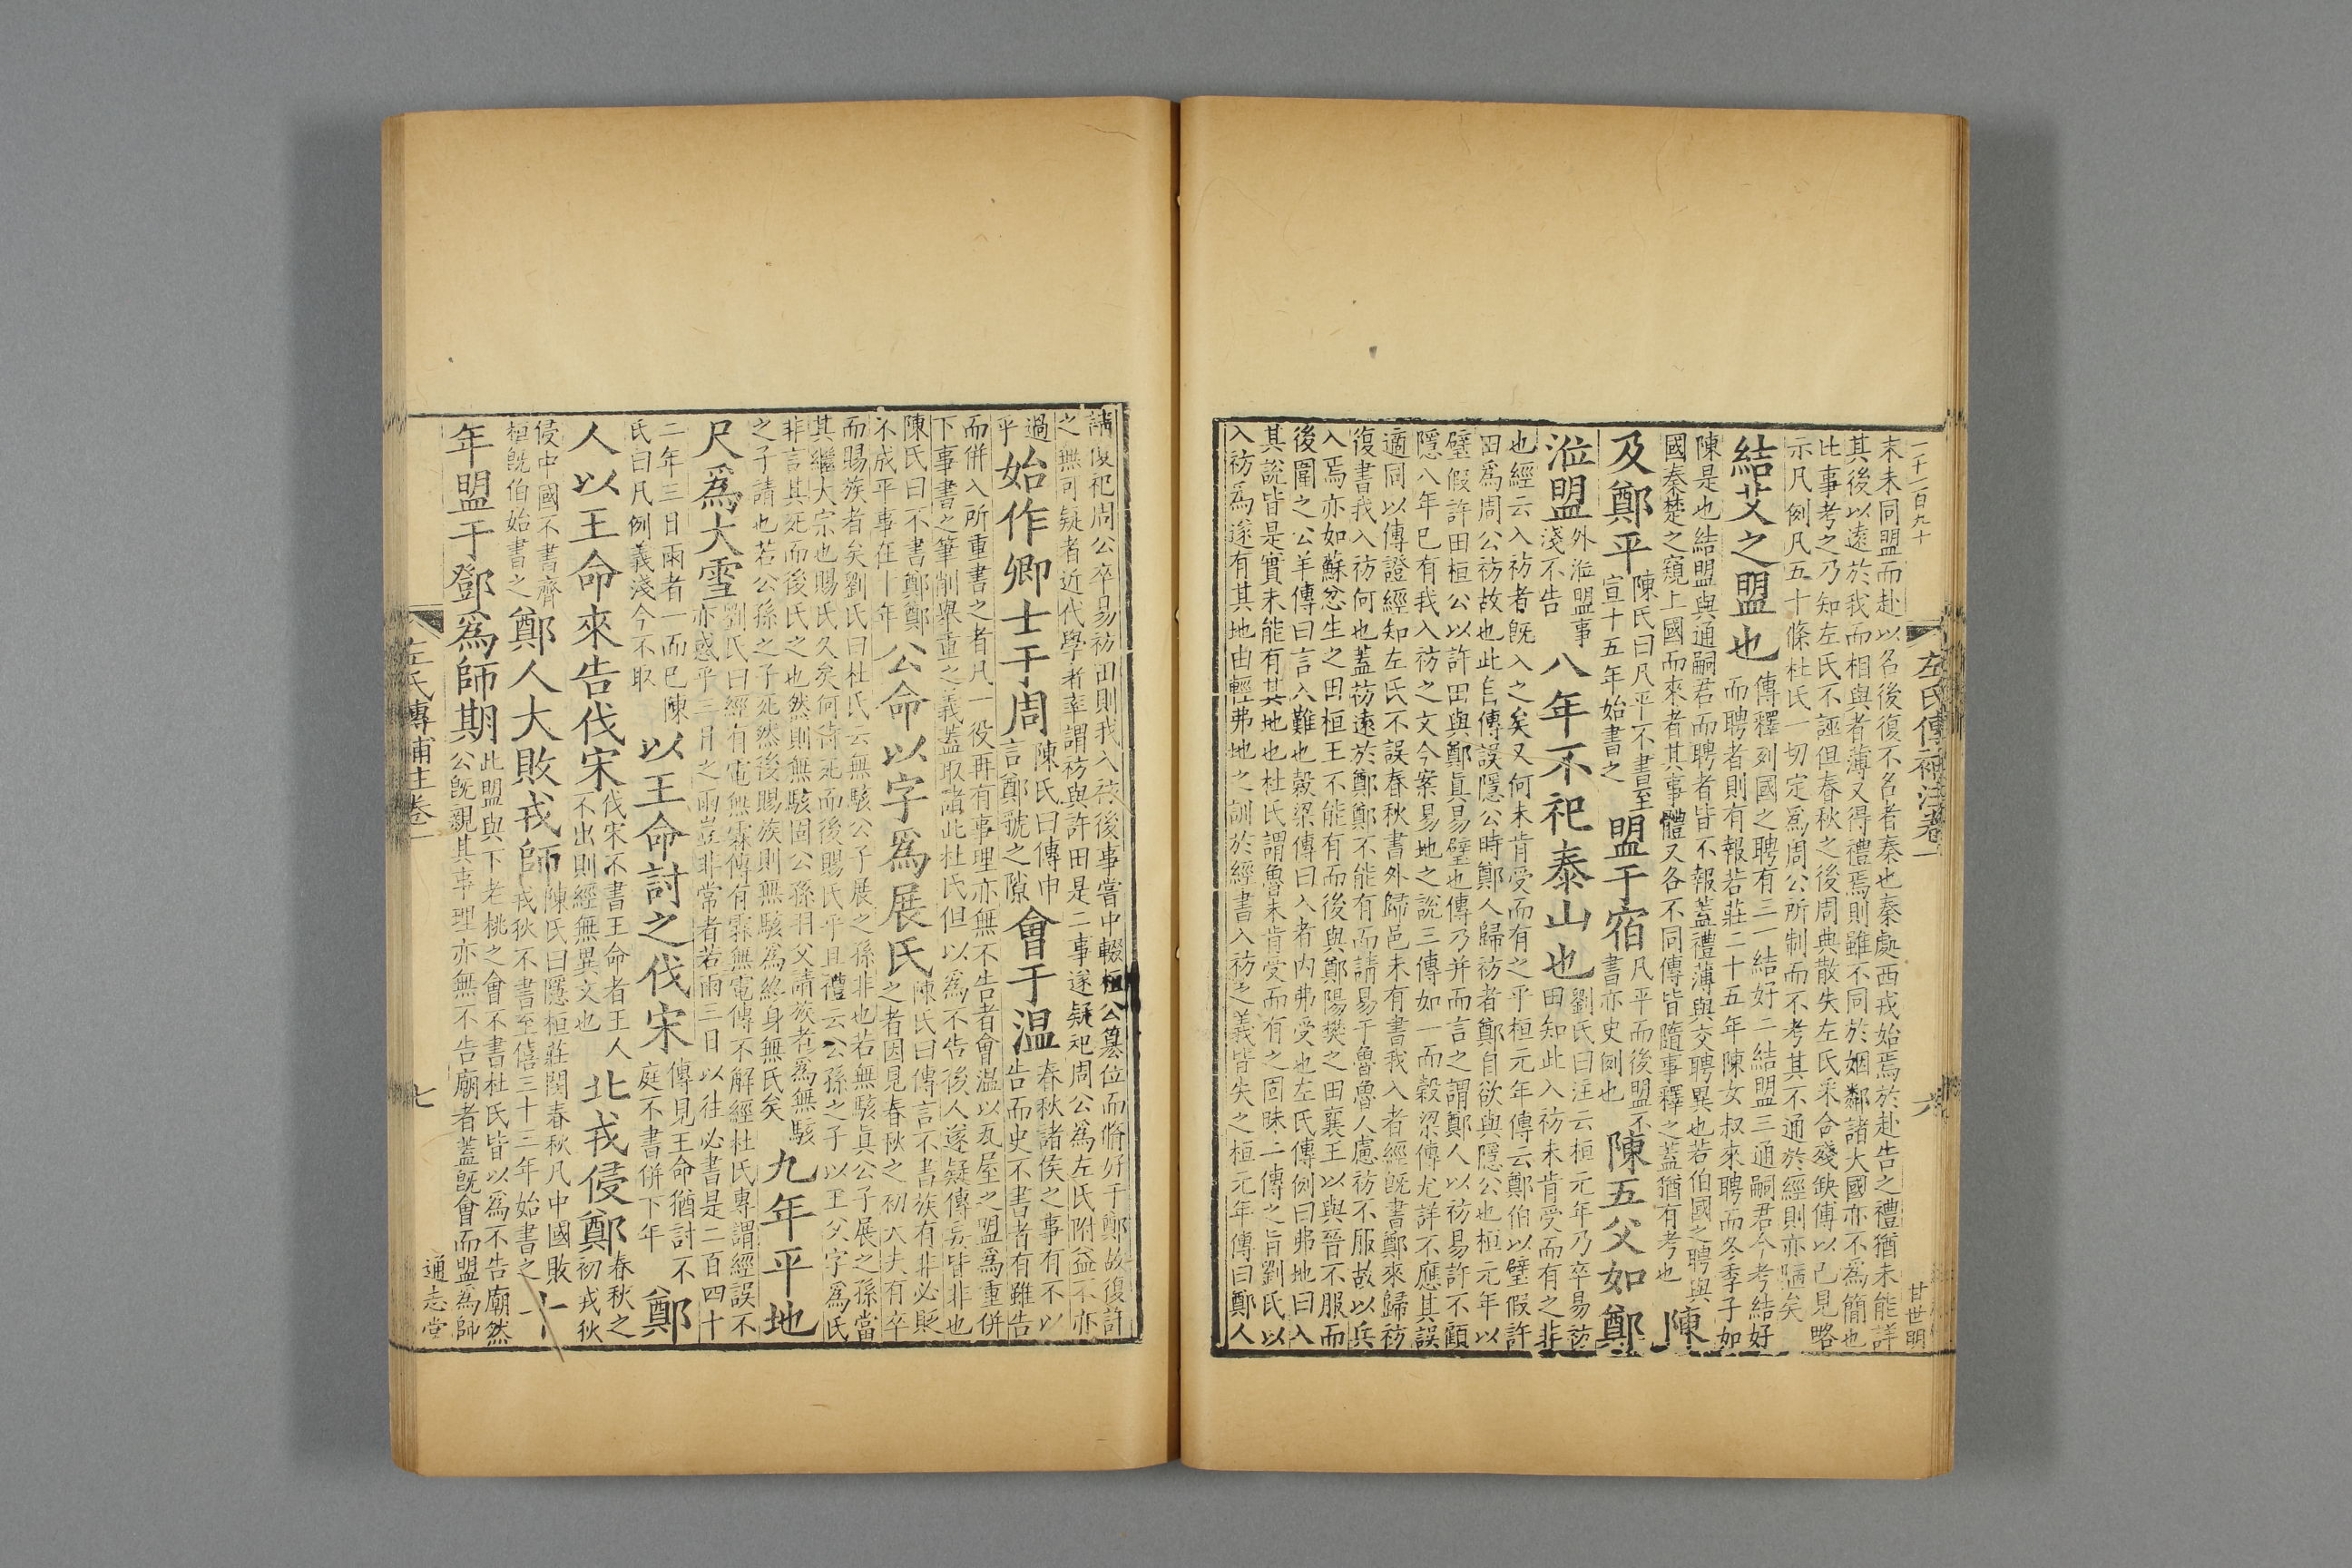 一千一百九十
左氏傳補注卷一
六
甘世明
末未同盟而赴以名後復不名者秦也秦處西戎始焉於赴告之禮猶未能詳
其後以遠於我而相與者薄又得禮焉則雖不同於姻鄰諸大國亦不為簡也
比事考之乃知左氏不誣但春秋之後周典散失左氏采合殘缺傳以己見略
示凡例凡五十條杜氏一切定爲周公所制而不考其不通於經則亦陋矣
結艾之盟也
傳釋列國之聘有三一結好二結盟三通嗣君今考結好
而聘者則有報若莊二十五年陳女叔來聘而冬季子如
陳是也結盟與通嗣君而聘者皆不報蓋禮薄與交聘異也若伯國之聘與
國秦楚之窺上國而來者其事體又各不同傳皆隨事釋之蓋猶有考也
陳
及鄭平
陳氏曰凡平不書至
宣十五年始書之
盟于宿
凡平而後盟不
書亦史例也
陳五父如鄭
涖盟
外涖盟事
淺不告
八年不祀泰山也
劉氏曰注云桓元年乃卒易祊
田知此入祊未肯受而有之非
也經云入祊者既入之矣又何未肯受而有之乎桓元年傳云鄭伯以璧假許
田爲周公祊故也此自傳誤隱公時鄭人歸祊者鄭自欲與隱公也桓元年以
璧假許田桓公以許田與鄭眞易璧也傳乃并而言之謂鄭人以祊易許不顧
隱八年已有我入祊之文今案易地之說三傳如一而榖梁傳尤詳不應其誤
適同以傳證經知左氏不誤春秋書外歸邑未有書我入者經既書鄭來歸祊
復書我入祊何也蓋祊遠於鄭鄭不能有而請易于魯魯人慮祊不服故以兵
入焉亦如蘇忿生之田桓王不能有而後與鄭陽樊之田襄王以與晉不服而
後圍之公羊傳曰言入難也榖梁傳曰入者内弗受也左氏傳例曰弗地曰入
其說皆是實未能有其地也杜氏謂魯未肯受而有之固昧二傳之旨劉氏以
入祊爲遂有其地由輕弗地之訓於經書入祊之義皆失之桓元年傳曰鄭人
請復祀周公卒易祊田則我入祊後事嘗中輟桓公簒位而脩好于鄭故復許
之無可疑者近代學者率謂祊與許田是二事遂疑祀周公爲左氏附益不亦
過
乎
始作卿士于周
陳氏曰傳中
言鄭虢之隙
會于温
春秋諸侯之事有不以
告而史不書者有雖告
而併入所重書之者凡一役再有事理亦無不告者會温以瓦屋之盟爲重併
下事書之筆削舉重之義蓋取諸此杜氏但以爲不告後人遂疑傳妄皆非也
陳氏曰不書鄭鄭
不成平事在十年
公命以字爲展氏
陳氏曰傳言不書族有非必貶
之者因見春秋之初大夫有卒
而賜族者矣劉氏曰杜氏云無駭公子展之孫非也若無駭眞公子展之孫當
其繼大宗也賜氏久矣何待死而後賜氏乎且禮云公孫之子以王父字爲氏
非言其死而後氏之也然則無駭固公孫羽父請族者爲無駭
之子請也若公孫之子死然後賜族則無駭爲終身無氏矣
九年平地
尺爲大雪
劉氏曰經有電無霖傳有霖無電傳不解經杜氏專謂經誤不
亦惑乎三月之雨豈非常者若雨三日以往必書是二百四十
二年三日雨者一而已陳
氏曰凡例義淺今不取
以王命討之伐宋
傳見王命猶討不
庭不書併下年
鄭
人以王命來告伐宋
伐宋不書王命者王人
不出則經無異文也
北戎侵鄭
春秋之
初戎狄
侵中國不書齊
桓既伯始書之
鄭人大敗戎師
陳氏曰隱桓莊閔春秋凡中國敗
戎狄不書至僖三十三年始書之一
十
年盟于鄧爲師期
此盟與下老桃之會不書杜氏皆以爲不告廟然
公既親其事理亦無不告廟者蓋既會而盟爲師
左氏傳補注卷一
七
通志堂